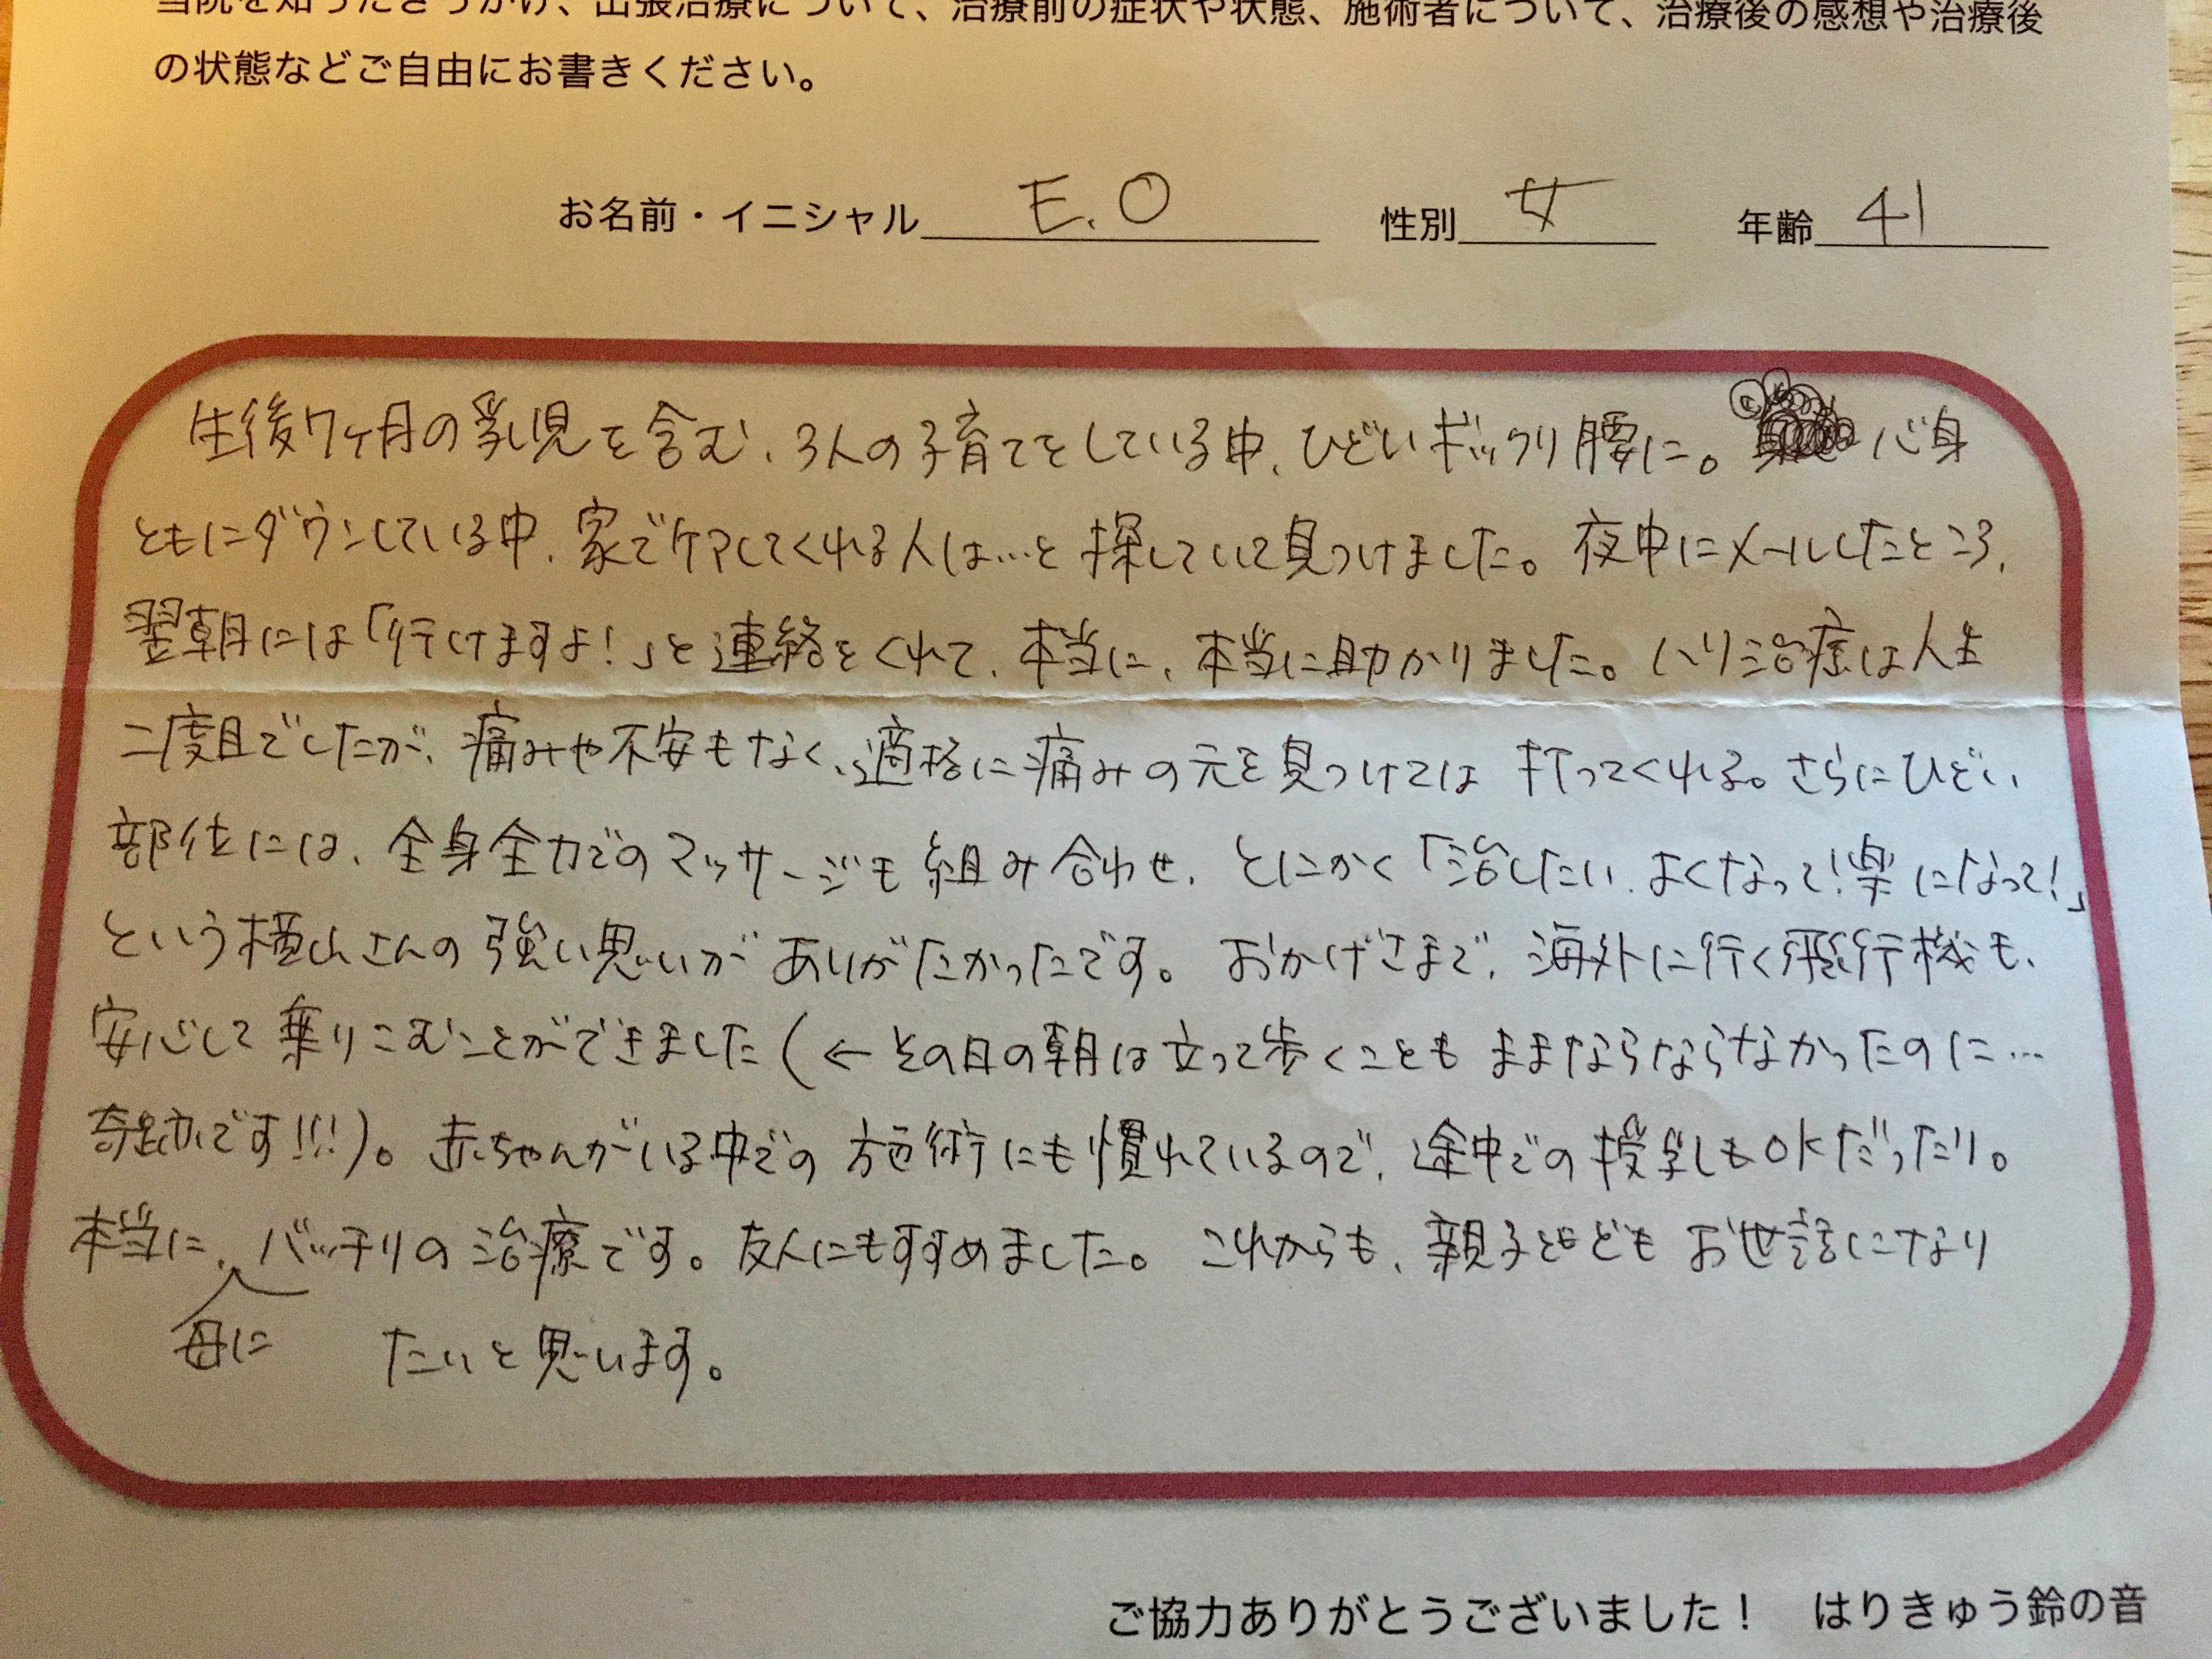 当院を知ったきっかけ、出張治療について、治療前の症状や状態、施術者について、治療後の感想や治療後
の状態などご自由にお書きください。
お名前・イニシャル E.O 性別 女 年齢 41
生後7ヶ月の乳児を含む、3人の子育てをしている中、ひどいギックリ腰に。心身
ともにダウンしている中、家でケアしてくれる人は…と探していて見つけました。夜中にメールしたところ、
翌朝には「行けますよ!」と連絡をくれて、本当に、本当に助かりました。ハリ治療は人生
二度目でしたが、痛みや不安もなく、適格に痛みの元を見つけては打ってくれる。さらにひどい
部位には、全身全力でのマッサージも組み合わせ、とにかく「治したい、よくなって!楽になって!」
という横山さんの強い思いがありがたかったです。おかげさまで、海外に行く飛行機も、
安心して乗りこむことができました(←その日の朝は立って歩くこともままならならなかったのに…
奇跡です!!!)。赤ちゃんがいる中での施術にも慣れているので、途中での授乳もOKだったり。
本当に、母にバッチリの治療です。友人にもすすめました。これからも、親子ともどもお世話になり
たいと思います。
ご協力ありがとうございました! はりきゅう鈴の音